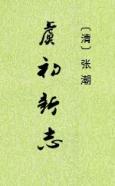 虞初新志
〔清〕张潮